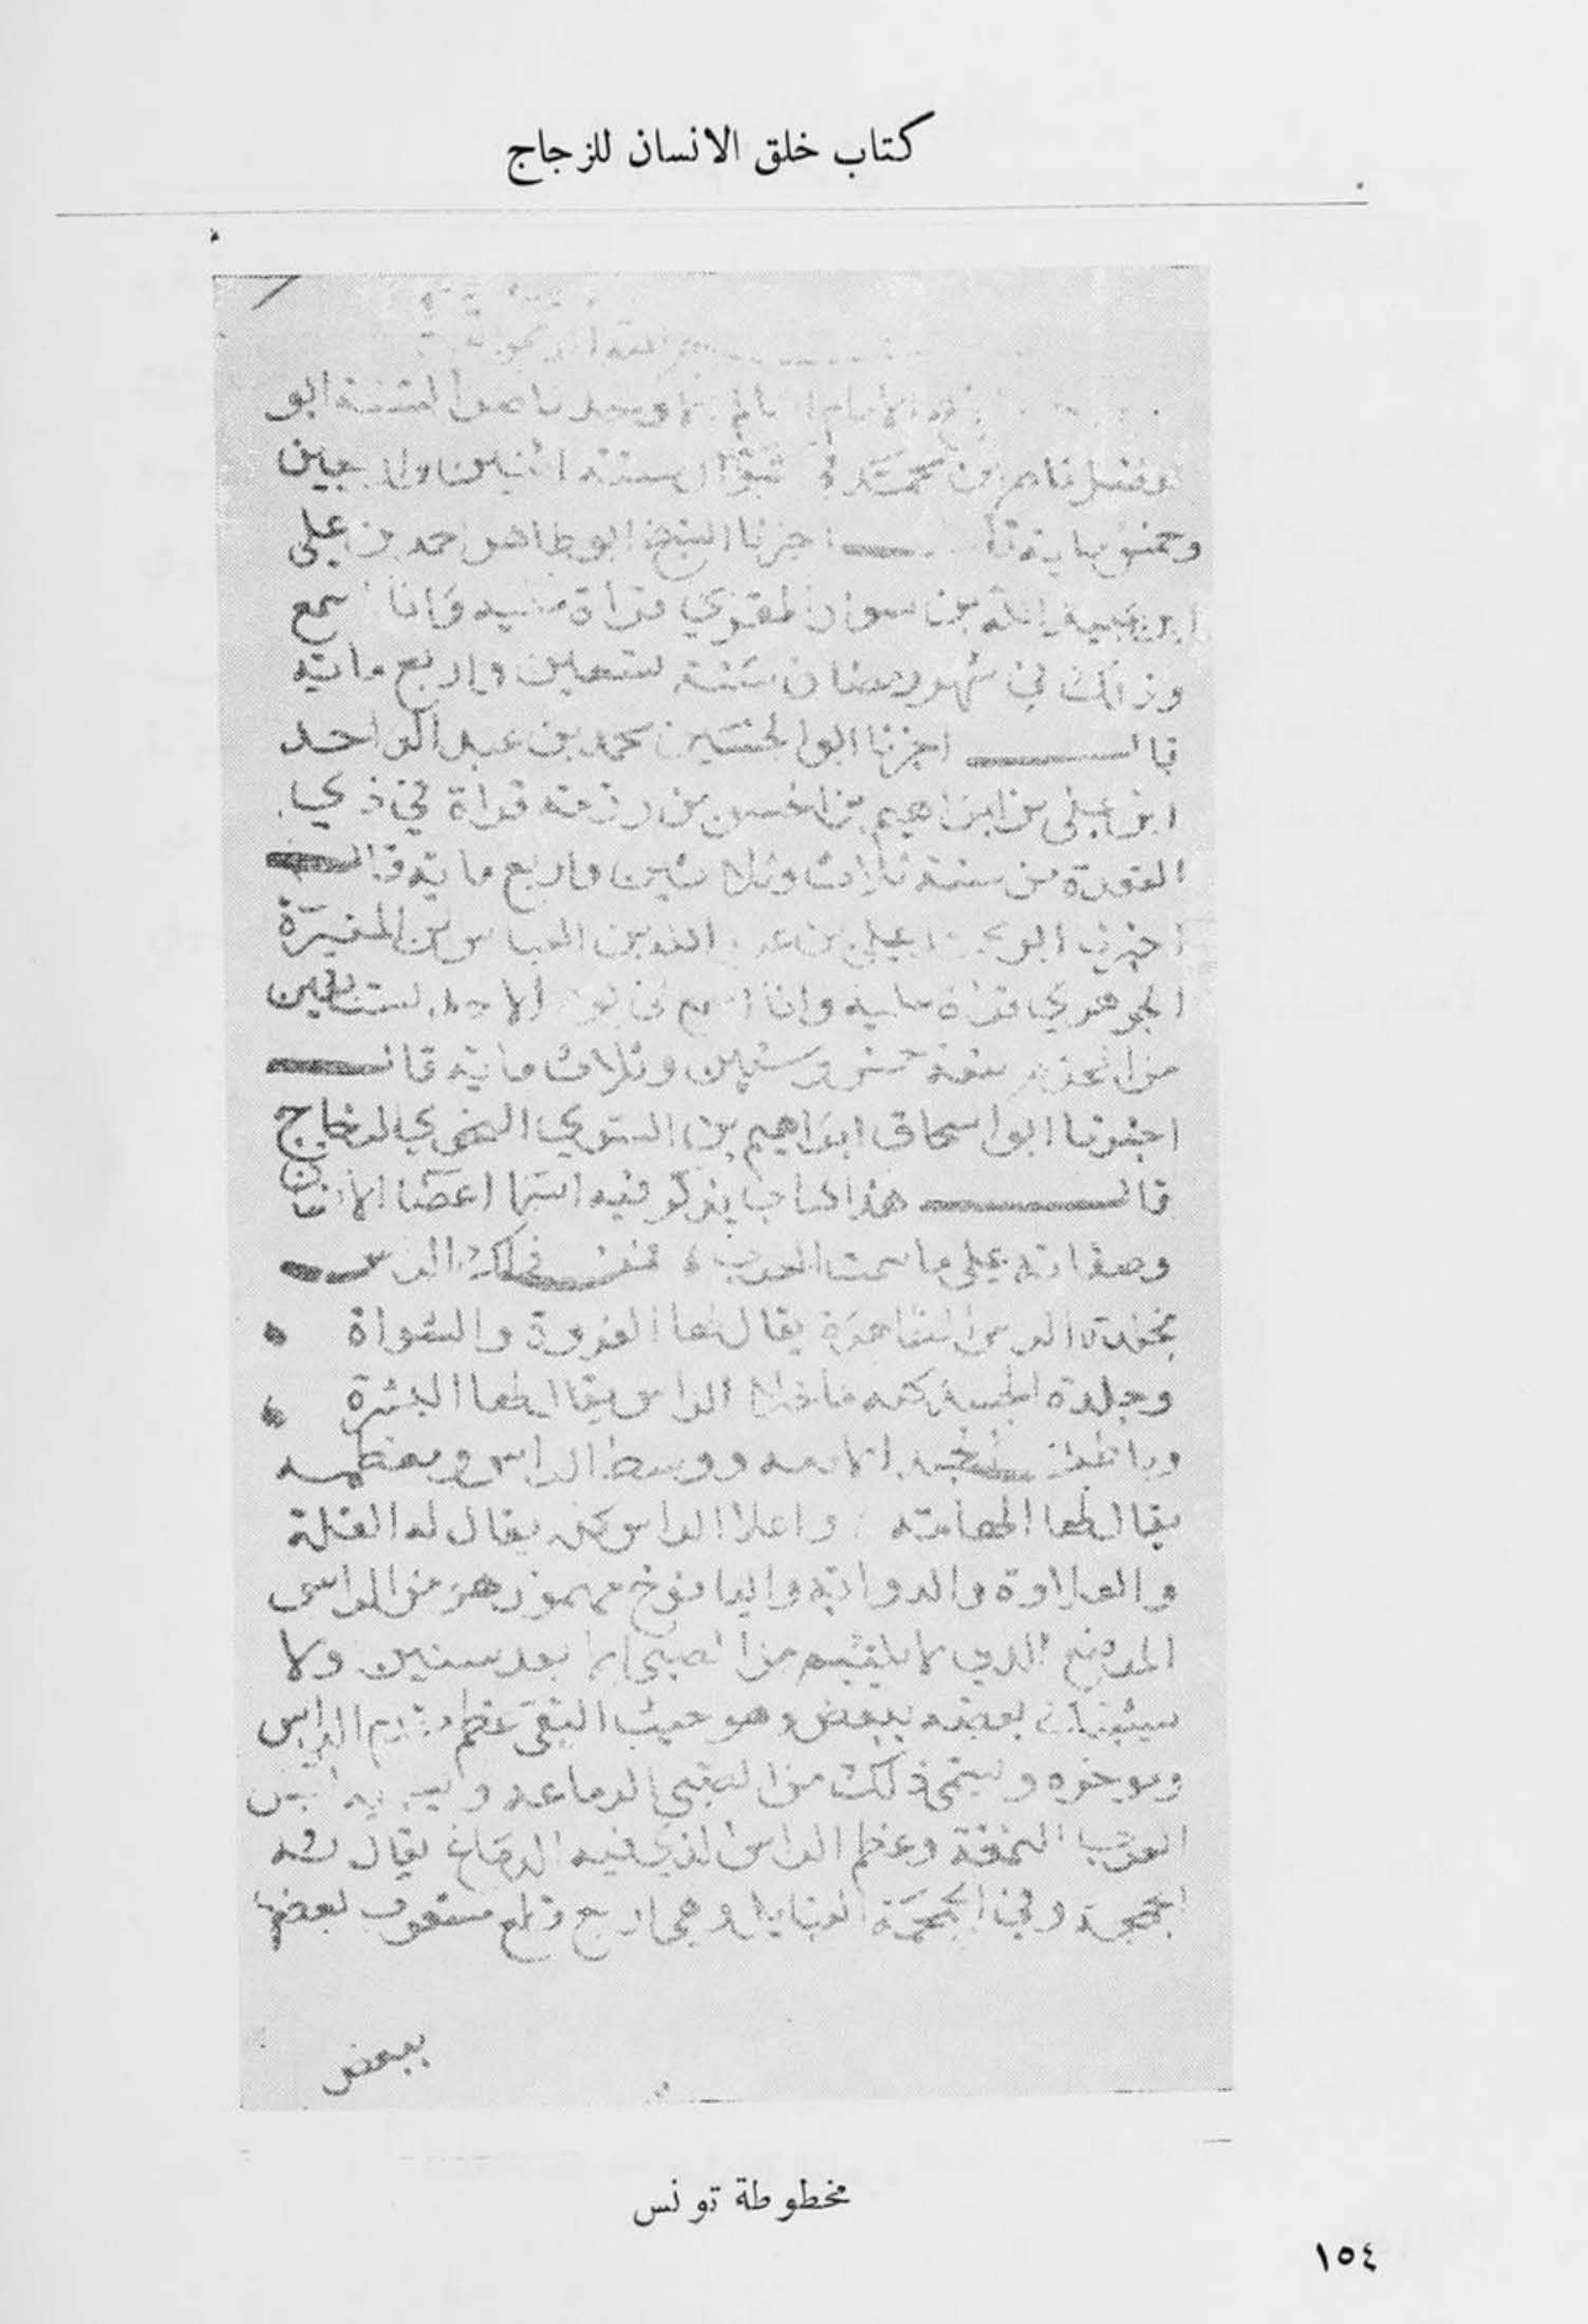 كتاب خلق الانسان للزجاج
الامام ابو
ناصر بن محمد في شوال سنة اثنين واربعين
وخمس مايه قا اخبرنا الشيخ ابو طاهر احمد بن علي
ابن عبيد الله بن سوار المقري قراة عليه وانا اسمع
وذلك في شهر رمضان سنة تسعين واربع مايه
قال اخبرنا ابو الحسين محمد بن عبد الواحد
ابن علي بن ابراهيم بن الحسن بن رزمه قراة في ذي
القعدة من سنة ثلاث وثلاثين واربع مايه قال
اخبرنا ابو علي بن العباس بن المغيرة
الجوهري قراة عليه وانا اسمع في يوم الاحد
من المحرم سنة خمس وستين وثلاث مايه قال
اخبرنا ابو اسحاق ابراهيم بن السري النحوي الزجاج
قال هذا كتاب يذكر فيه اسما اعضا الانسان
وصفاته على ما سمت العرب فمن ذلك الراس
فجلدة الراس الظاهرة يقال لها الفروة والشواة
وجلدة الجسد كله ما خلا الراس يقال لها البشرة
وباطن الجلد الادمه ووسط الراس ومعظمه
يقال لها الهامه واعلا الراس كله يقال له القلة
والعلاوة والدوابه واليافوخ مهموز هو من الراس
الموضع الذي لا يلتيم من الصبي الا بعد سنين ولا
بعضه ببعض وهو حيث التقى عظم مقدم الراس
وموخره ويسمى ذلك من الصبي الرماعه
العرب النمغة وعظم الراس الذي فيه الدماغ يقال له
الجمجمة وفي الجمجمة القبايل وهي اربع قطع مشعوب بعضها
ببعض
مخطوطة تونس
١٥٤